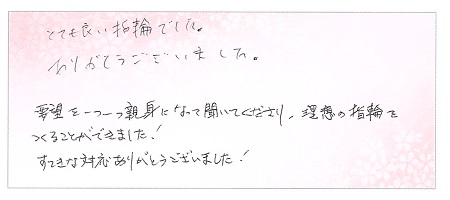 とても良い指輪でした。
ありがとうございました。
要望を一つ一つ親身になって聞いてくださり、理想の指輪を
つくることができました！
すてきな対応ありがとうございました！